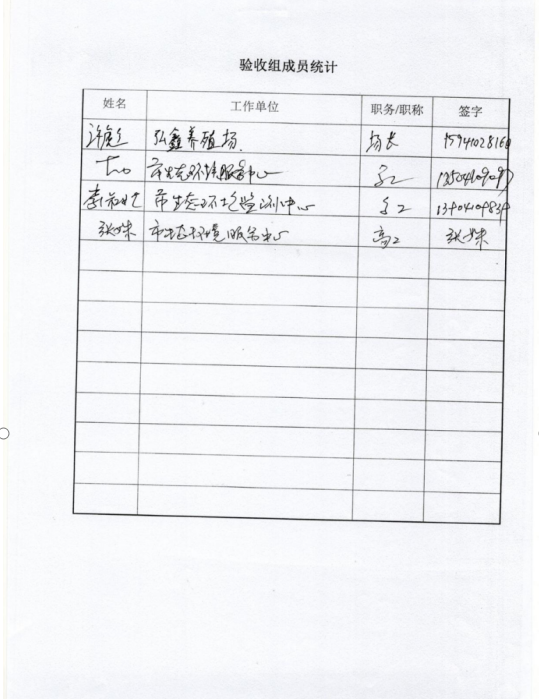 验收组成员统计
姓名 工作单位 职务/职称 签字
弘鑫养殖场 场长 1594102816
市生态环境服务中心 高工
市生态环境监测中心 高工
张姝 市生态环境服务中心 高工 张姝